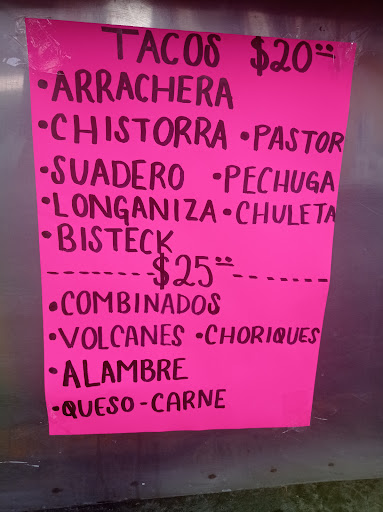 TACOS $20.00
•ARRACHERA
•CHISTORRA •PASTOR
•SUADERO •PECHUGA
•LONGANIZA •CHULETA
•BISTECK
--------$25.00--------
•COMBINADOS
•VOLCANES •CHORIQUES
•ALAMBRE
•QUESO-CARNE